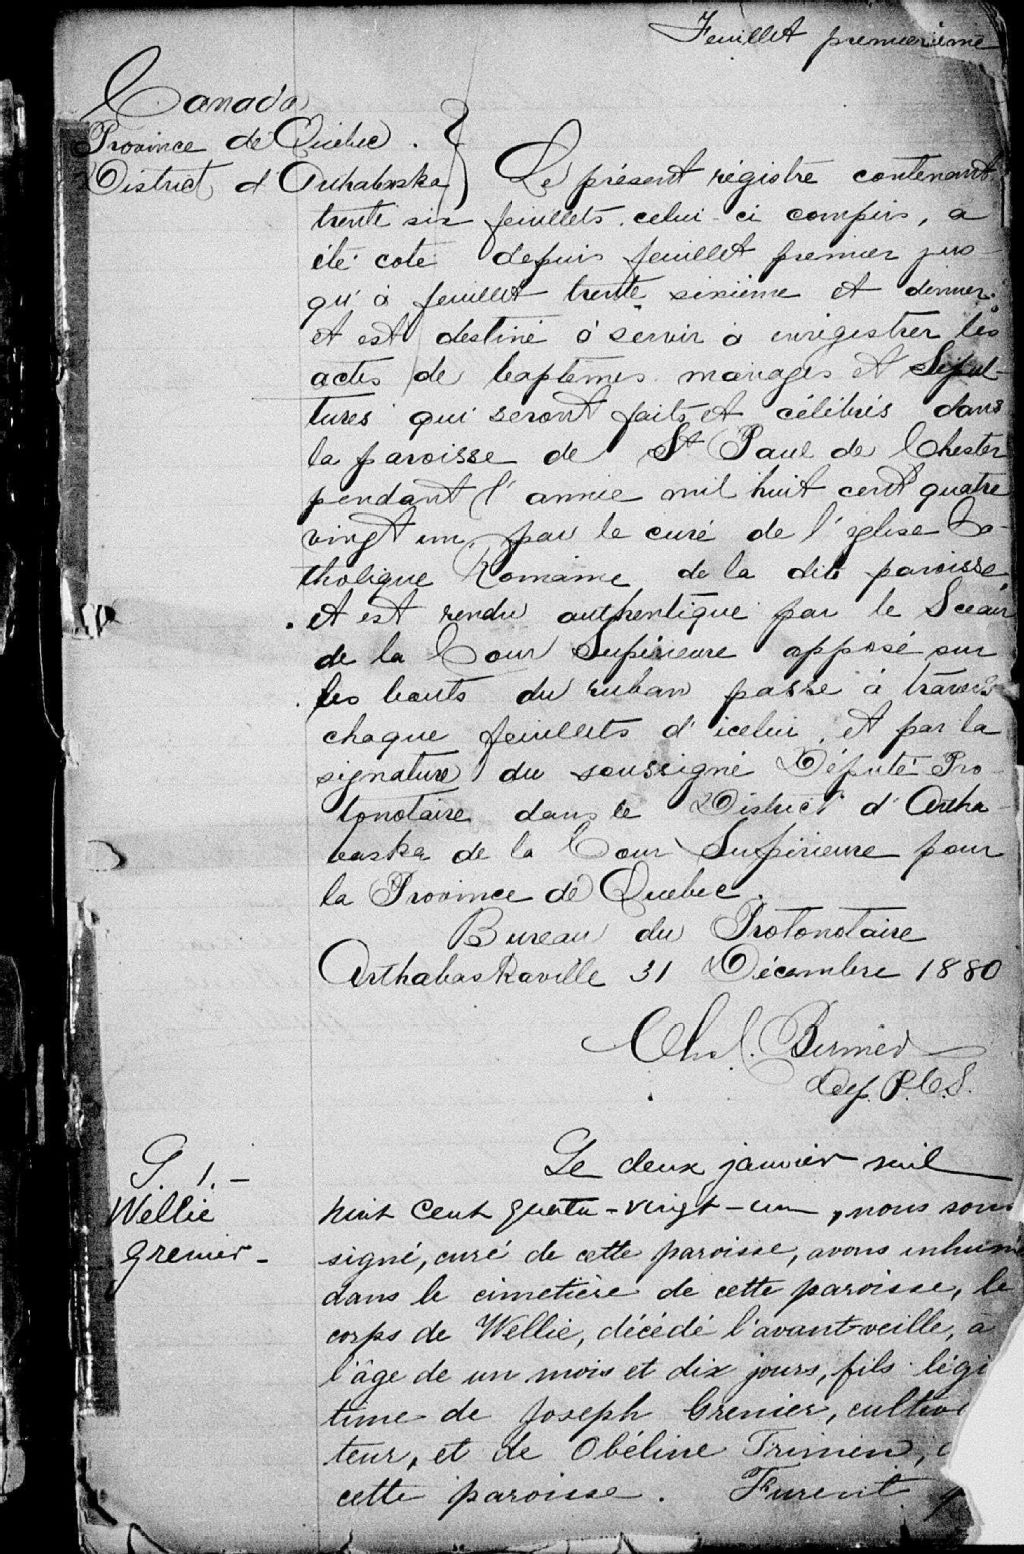 Feuillet premierième
Canada
Province de Québec.
District d'Arthabaska } Le présent régistre contenant
trente six feuillets celui-ci compris, a
été coté depuis feuillet premier jus-
qu'à feuillet trente sixième et dernier
et est destiné à servir à enrégistrer les
actes de baptêmes mariages et Sépul-
tures qui seront faits et célébrés dans
la paroisse de St Paul de Chester
pendant l'année mil huit cent quatre
vingt un, par le curé de l'église Ca-
tholique Romaine de la dite paroisse,
et est rendu authentique par le Sceau
de la Cour Supérieure apposé sur
les bouts du ruban passé à travers
chaque feuillets d'icelui, et par la
signature du soussigné Député Pro-
tonotaire dans le District d'Artha-
baska de la Cour Supérieure pour
la Province de Québec.
Bureau du Protonotaire
Arthabaskaville 31 Décembre 1880
Chs. Bernier
Dep. P.C.S.
S. 1.-
Wellie
Grenier-
Le deux janvier mil
huit cent quatre-vingt-un, nous sous
signé, curé de cette paroisse, avons inhumé
dans le cimetière de cette paroisse, le
corps de Wellie, décédé l'avant veille, à
l'âge de un mois et dix jours, fils légi
time de Joseph Grenier, cultiva
teur, et de Obéline
cette paroisse. Furent